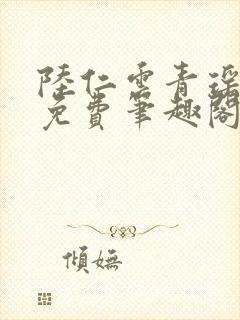 陸仁雲青瑤
免費筆趣閣
傾嫵